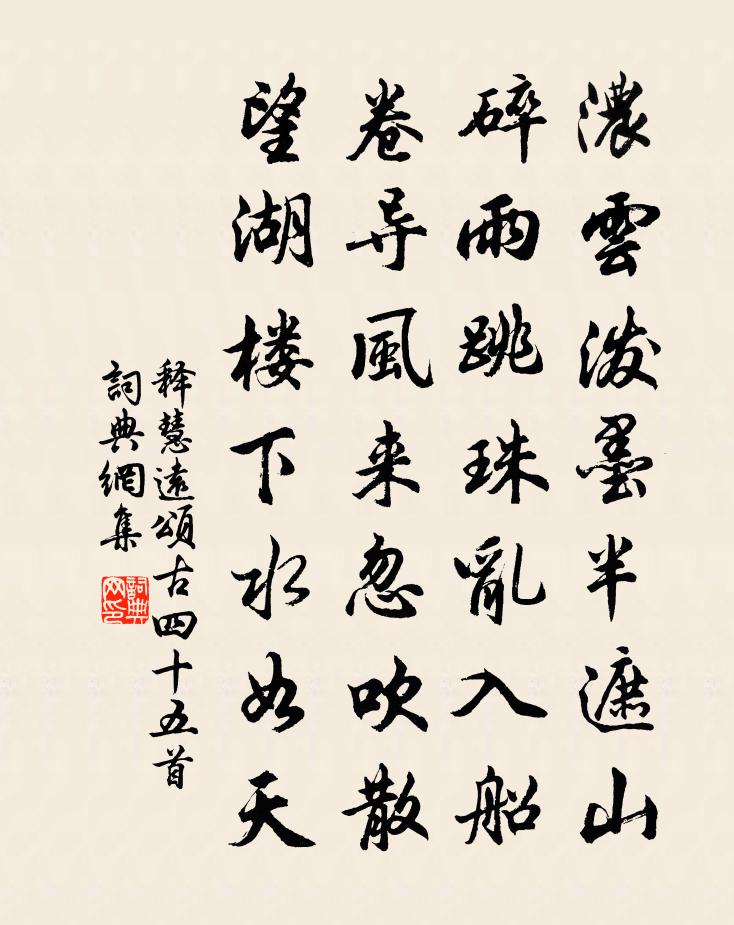 濃雲潑墨半遮山
碎雨跳珠亂入船
卷导風来忽吹散
望湖楼下水如天
释慧遠頌古四十五首
詞典網集
詞典
网印